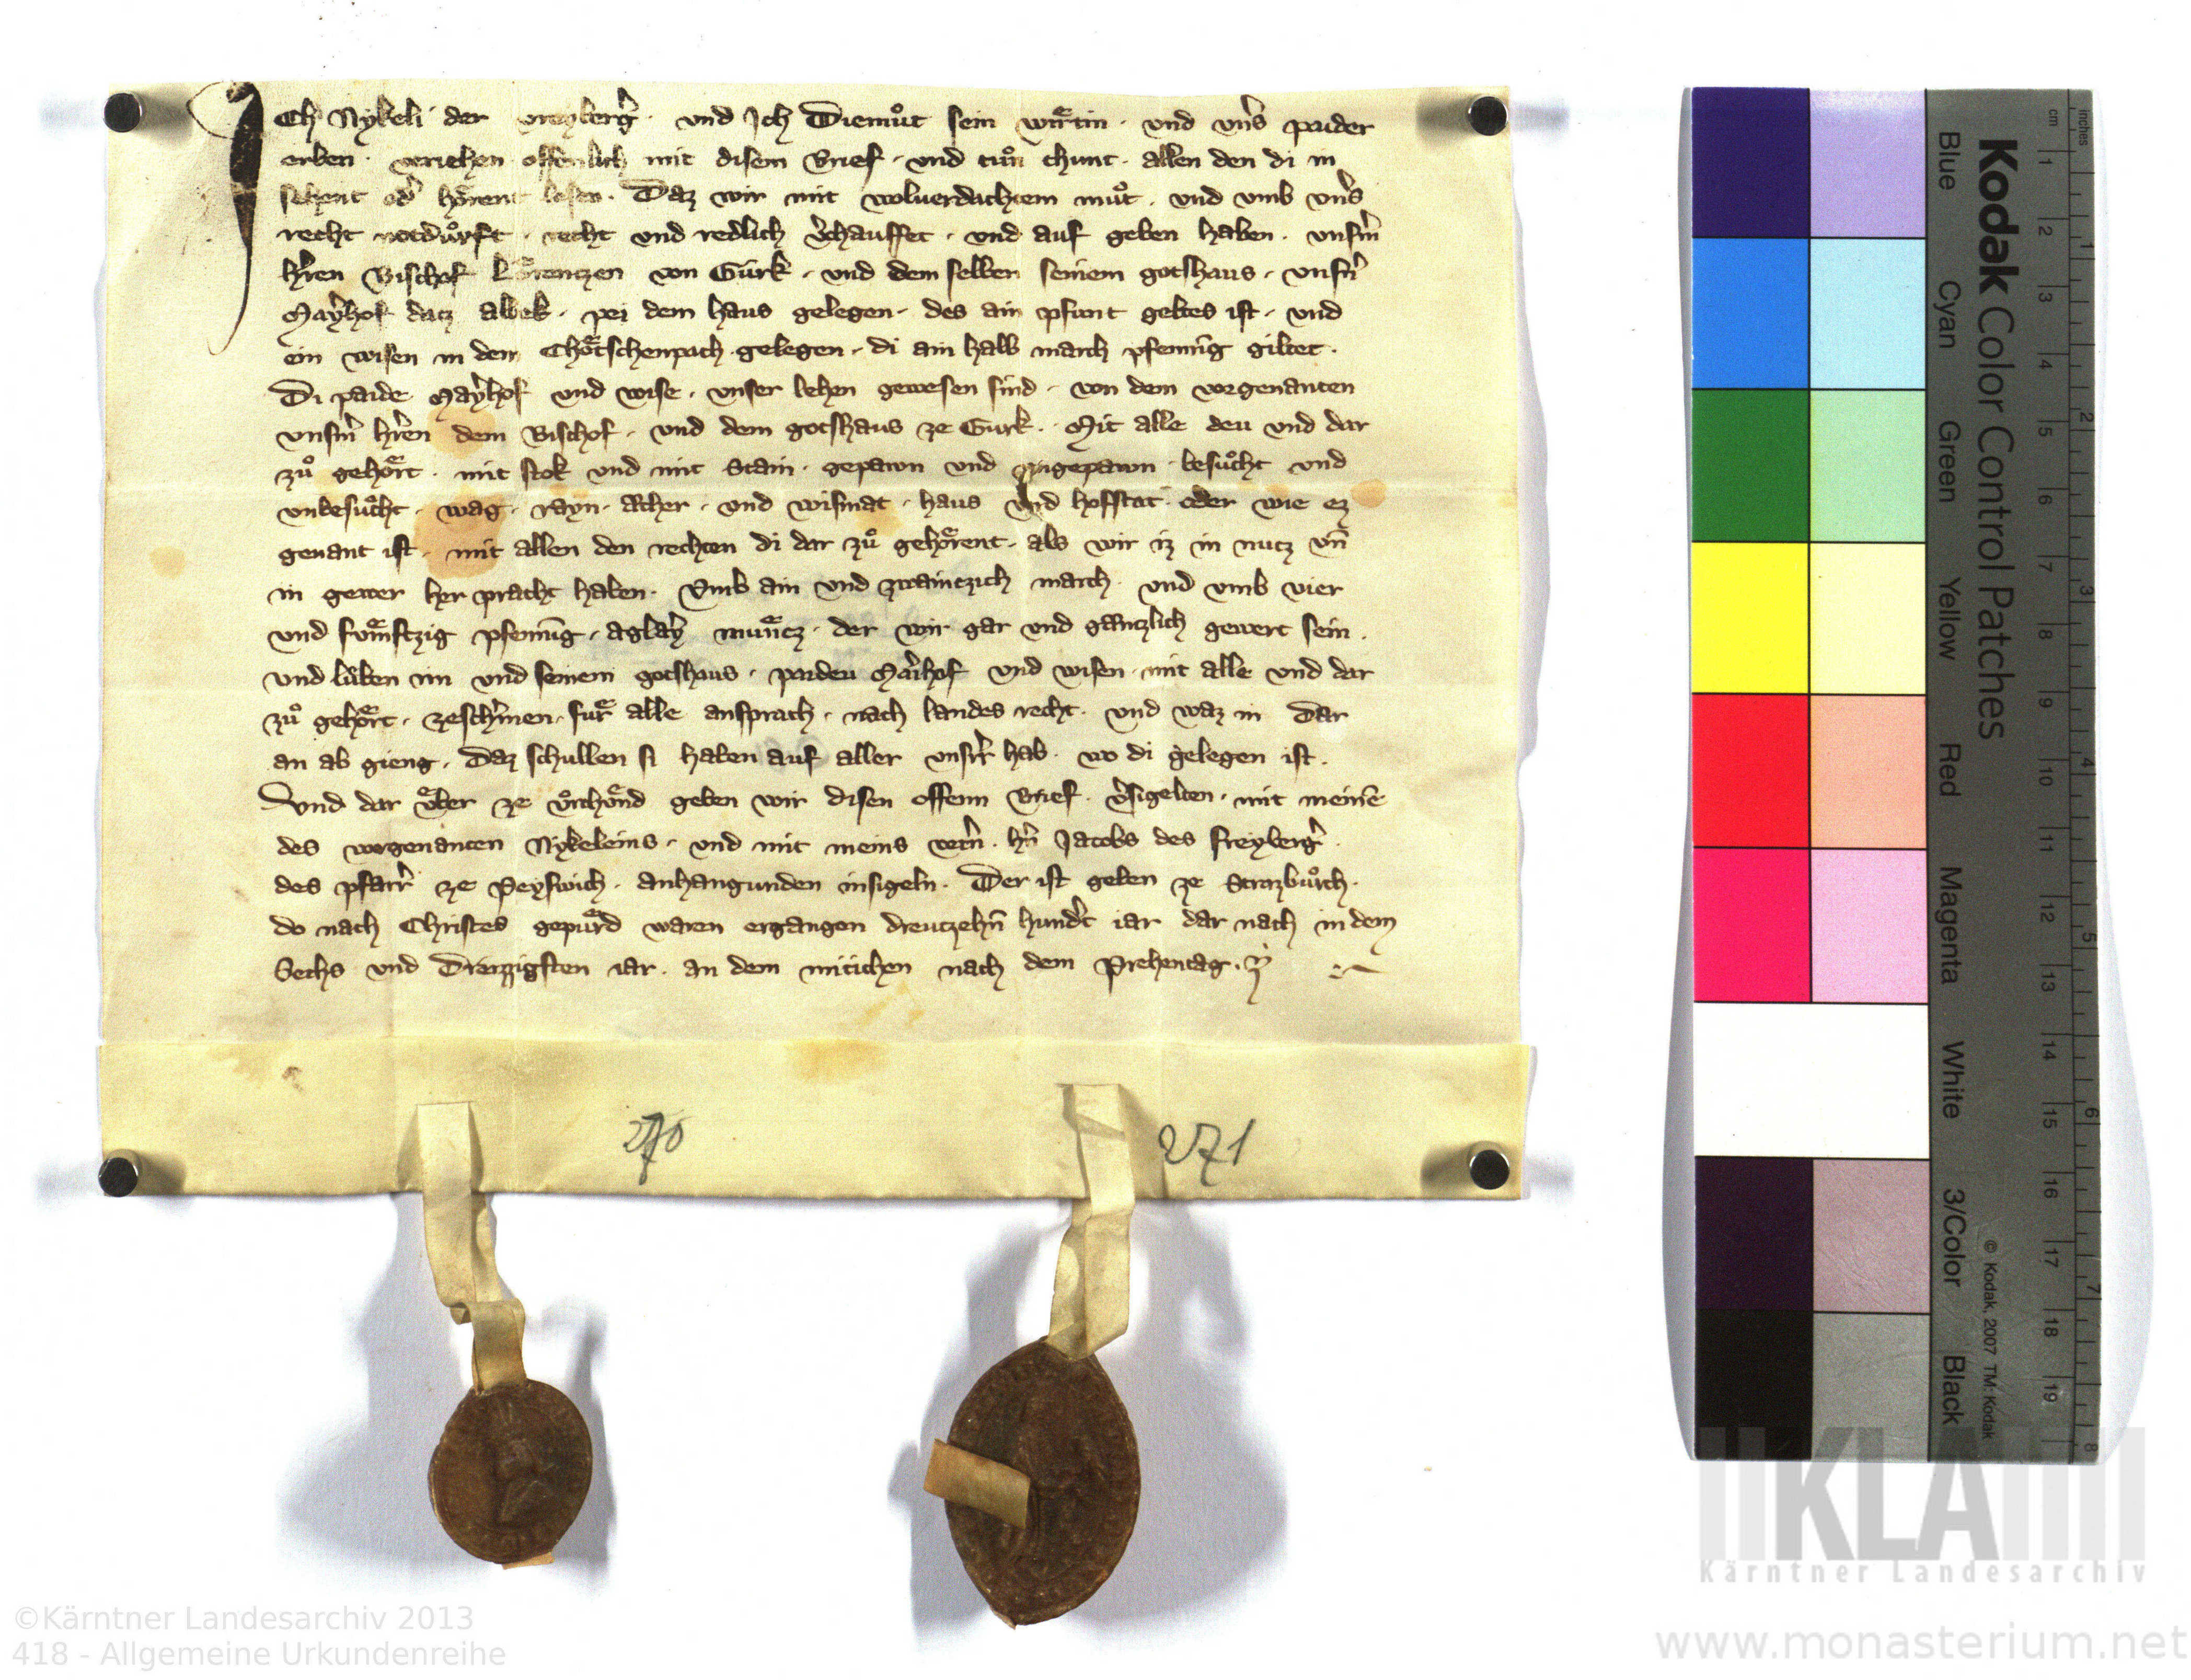 Ich Nykeli der vreyberg̉ · vnd Jch Diemůt sein wirtin · vnd vnẜs paider
erben · veriehen offenlich mit disem Brief · vnd tůn chunt · allen den di in
sehent od̉ hörent lesen · Daz wir mit woluerdachtem můt · vnd vmb vnẜs
recht notdůrft · recht vnd redlich v̉chauffet · vnd auf geben haben · vnsm̉
hr̉en Bischof Lörentzen von Gurk · vnd dem selben seinem gotshaus · vnsn̉
Mayr̉hof datz albek · pei dem haus gelegen · des ain pfunt geltes ist · vnd
ein wisen in dem Chötschenpach gelegen · di ain halb march pfenning giltet ·
Di paide Mayr̉hof vnd wise · vnser lehen gewesen sind · von dem vorgenanten
vnsm̉ hr̉en dem Bischof · vnd dem gotshaus ze Gurk · Mit alle deu vnd dar
zů gehört · mit stok vnd mit Stain · gepawn vnd vngepawn · besůcht vnd
vnbesůcht · wag · rayn · Acher · vnd wismat · haus vnd hofstat · oder wie ez
genant ist · mit allen den rechten di dar zů gehörent · als wir iz in nutz vn̄
in gewer her pracht haben · Vmb ain vnd zwaintzich march · vnd vmb vier
vnd fümftzig pfenning · aglaỷ müntz · der wir gar vnd gäntzlich gewert sein ·
vnd lüben im vnd seinem gotshaus · paiden Mair̉hof vnd wisen · mit alle vnd dar
zů gehört · zeschr̉men · für alle ansprach · nach landes recht · vnd waz in dar
an ab gieng · Daz schullen si haben auf aller vnsrr̉ hab · wo di gelegen ist ·
Vnd dar über ze ůrchünd geben wir disen offenn Brief · v̉sigelten · mit meinē
des vorgenanten Nykeleins · vnd mit meins vetn̉ · hn̉ Jacobs des Freyberg̉ ·
des pfarr̉ ze Peyswich · anhangunden insigeln · Der ist geben ze Strazbůrch ·
do nach Christes gepürd waren ergangen dreutzehn̄ hund̉t iar dar nach in dem
Sechs vnd Dreizzigsten iar · an dem mitichen nach dem Prehentag ·
270
271
Kodak Color Control Patches
Blue
Cyan
Green
Yellow
Red
Magenta
White
3/Color
Black
© Kodak, 2007 TM: Kodak
cm 1 2 3 4 5 6 7 8 9 10 11 12 13 14 15 16 17 18 19
inches 1 2 3 4 5 6 7 8
KLA
Kärntner Landesarchiv
©Kärntner Landesarchiv 2013
418 - Allgemeine Urkundenreihe
www.monasterium.net